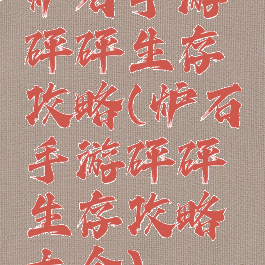 炉石手游
砰砰生存
攻略(炉石
手游砰砰
生存攻略
大全)